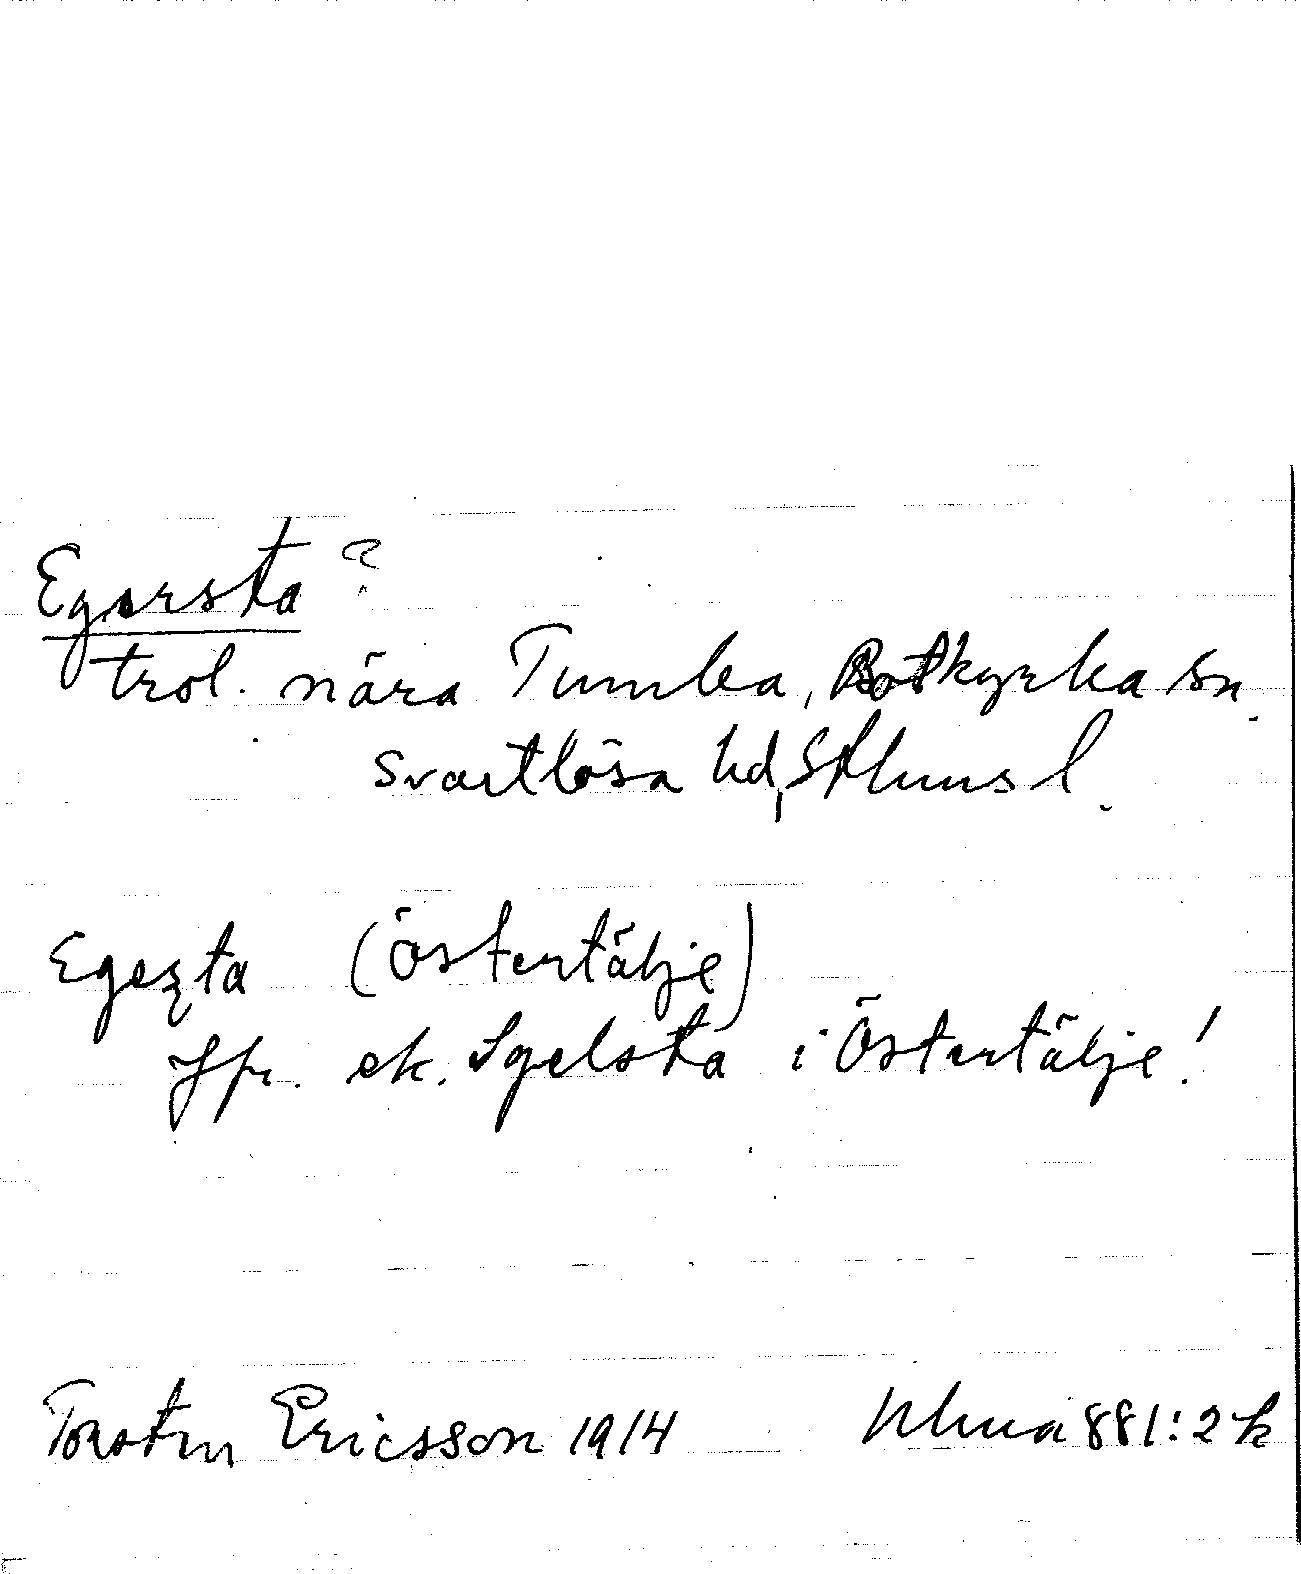 Egersta ?
trol. nära Tumba, Botkyrka sn.
Svartlösa hd, Sthlms l.
Egesta (Östertälje)
Jfr. ek. Igelsta i Östertälje!
Torsten Ericsson 1914 Ulma 881:2 k